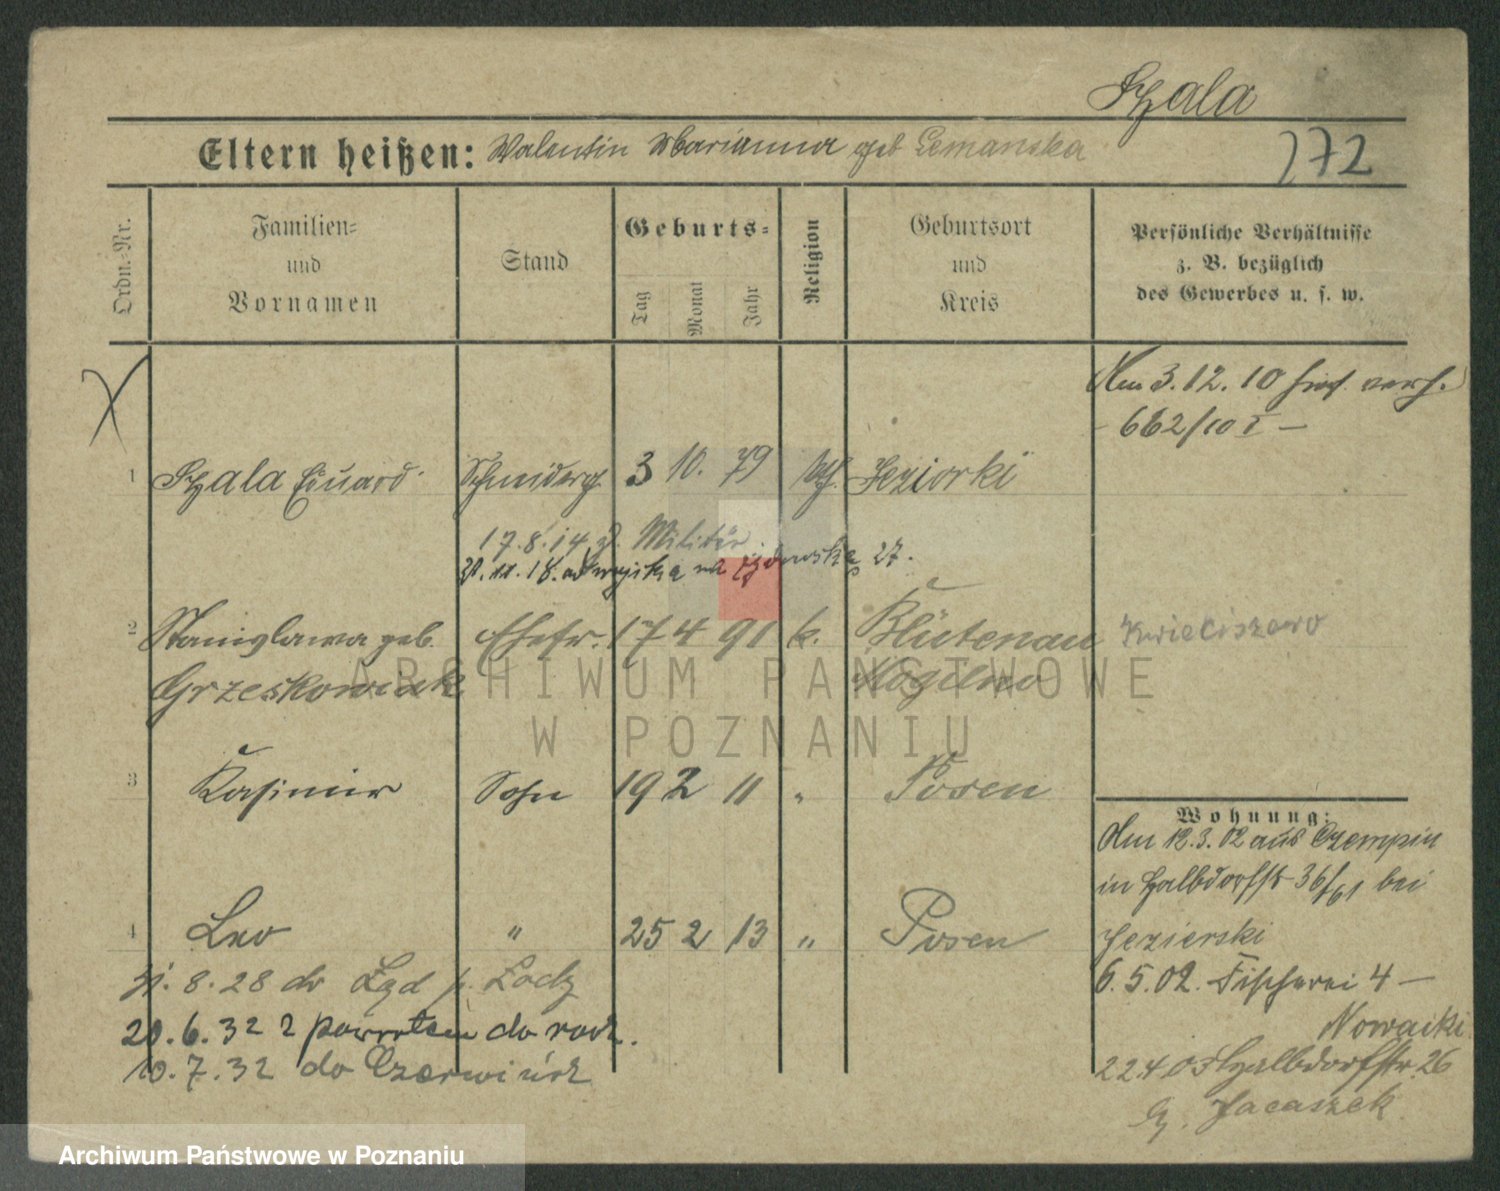 Szala
272
Eltern heißen: Valentin Marianna geb Lemanska
Ordn.-Nr.
Familien- und Vornamen
Stand
Geburts-
Tag
Monat
Jahr
Religion
Geburtsort und Kreis
Persönliche Verhältnisse
z. B. bezüglich
des Gewerbes u. s. w.
Am 3.12.10 verh.
- 662/10 I -
1 Szala Eduard Schneiderg. 3 10. 79 kth. Jeziorki
17.8.14 z. Militär
11.18. od wojska na Żydowska 27.
2 Stanislawa geb. Ehefr. 17 4 91 k. Blütenau Kwieciszewo
Grzeskowiak Mogilno
3 Kasimir Sohn 19 2 11 " Posen
Wohnung:
Am 12.3.02 aus Czempin
in Halbdorfstr 36/61 bei
4 Leo " 25 2 13 " Posen
Jezierski
8.28 do Lgd p. Lodz
6.5.02. Fischerei 4 -
20.6.32 z powrotem do rodz.
Nowacki
10.7.32 do Czerwińsk
22.4.03 Halbdorfstr. 26
b/ Jacaszek
ARCHIWUM PAŃSTWOWE
W POZNANIU
Archiwum Państwowe w Poznaniu